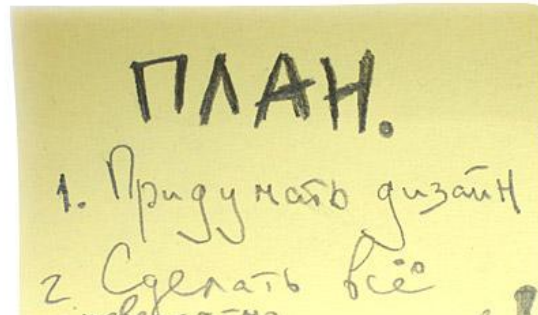 ПЛАН.
1. Придумать дизайн
2 Сделать всё